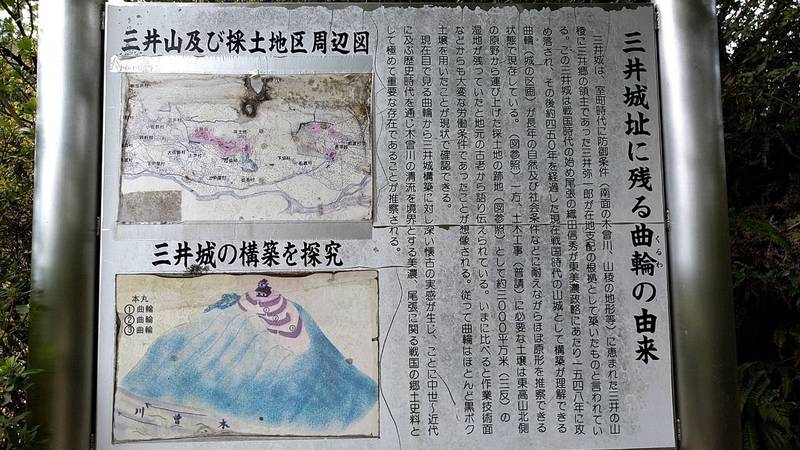 三井城址に残る曲輪の由来
くるわ
三井城は、室町時代に防御条件(南面の木曾川、山稜の地形等)に恵まれた三井の山
稜に三井郷の領主であった三井弥一郎が在地支配の根拠として築いたものと言われてい
る。この三井城は戦国時代の始め尾張の織田信秀が東美濃政略にあたり一五四八年に攻
め落され、その後約四五〇年を経過した現在戦国時代の山城として構築が理解できる
曲輪(城の区画)が長年の自然及び社会条件などに耐えながらほぼ原形を推察できる
状態で現存している。(図参照)一方、土木工事(普請)に必要な土壌は東高山北側
の原野から運び上げた採土地の跡地(図参照)として約三〇〇〇平方米(三反)の
湿地が残っていたと地元の古老から語り伝えられている。いまに比べると作業技術面
などからも大変な労働条件であったことが想像される。従って曲輪はほとんど黒ボク
土壌を用いたことが現状で確認できる。
現在目で見る曲輪から三井城構築に対し深い懐古の実感が生じ、ことに中世~近代
に及ぶ歴史時代を通じ木曾川の清流を境界とする美濃、尾張に関する戦国の郷土史料と
して極めて重要な存在であることが推察される。
三井山及び採土地区周辺図
三井城の構築を探究
本丸
①曲輪
②曲輪
③曲輪
川 曾 木